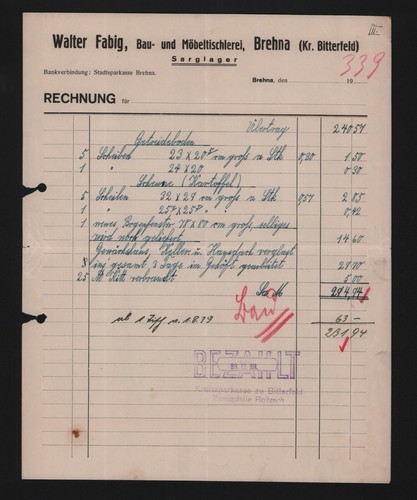 III
Walter Fabig, Bau- und Möbeltischlerei, Brehna (Kr. Bitterfeld)
Sarglager
339
Bankverbindung: Stadtsparkasse Brehna.
Brehna, den 19
RECHNUNG für
Übertrag 240 51
Getreideboden
5 Scheiben 23 x 20 cm groß u Stk 0,30 1.50
1 " 24 x 20 0.30
Scheune (Kartoffel)
5 Scheiben 32 x 29 cm groß u Stk 0,57 2 85
1 " 25 x 25 " 0,42
1 neues Bogenfenster 78 x 80 cm groß, selbiges
wird noch geliefert 14 60
Gewächshaus, Keller u. verglast
8 insgesamt 3 Tage im Gehöft gearbeitet
25 Kitt verbraucht 5.00
Sa M 294,94
Bau
ab 63 —
231,94
BEZAHLT
Kreissparkasse zu Bitterfeld